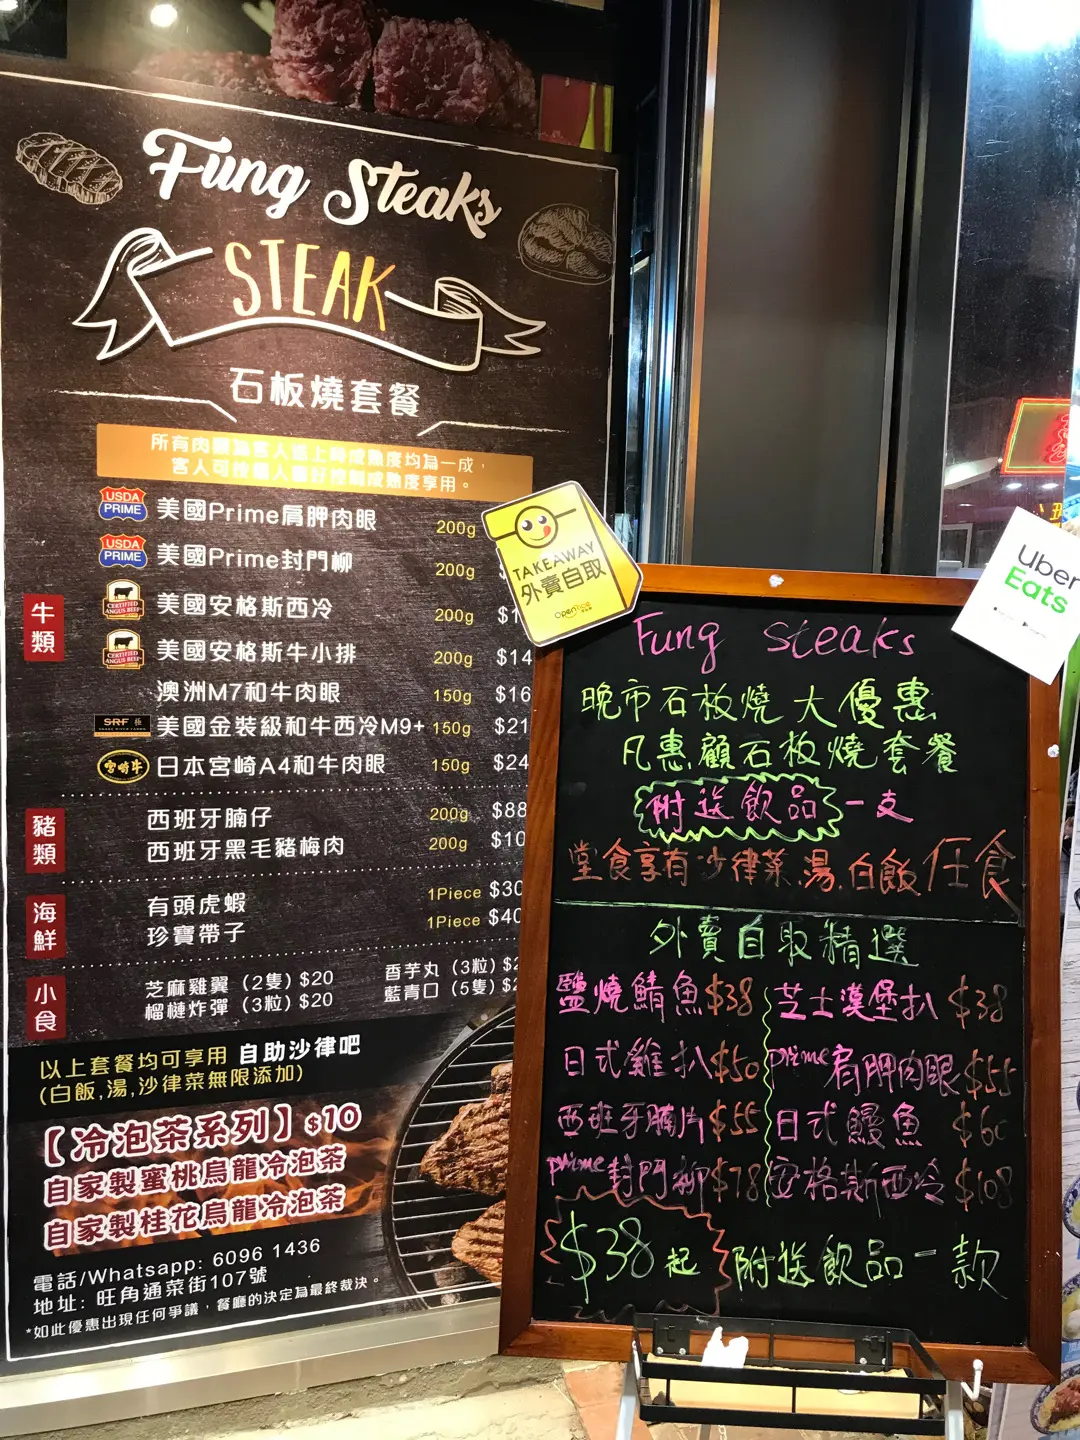 Fung Steaks
STEAK
石板燒套餐
所有肉類為客人送上時成熟度均為一成，
客人可按個人喜好控制成熟度享用。
牛類
USDA PRIME 美國Prime肩胛肉眼 200g
USDA PRIME 美國Prime封門柳 200g
CERTIFIED ANGUS BEEF 美國安格斯西冷 200g $1
CERTIFIED ANGUS BEEF 美國安格斯牛小排 200g $14
澳洲M7和牛肉眼 150g $16
SRF 美國金裝級和牛西冷M9+ 150g $21
宮崎牛 日本宮崎A4和牛肉眼 150g $24
豬類
西班牙腩仔 200g $88
西班牙黑毛豬梅肉 200g $10
海鮮
有頭虎蝦 1Piece $30
珍寶帶子 1Piece $40
小食
芝麻雞翼（2隻）$20 香芋丸（3粒）$2
榴槤炸彈（3粒）$20 藍青口（5隻）$2
以上套餐均可享用 自助沙律吧
(白飯,湯,沙律菜無限添加)
【冷泡茶系列】$10
自家製蜜桃烏龍冷泡茶
自家製桂花烏龍冷泡茶
電話/Whatsapp: 6096 1436
地址: 旺角通菜街107號
*如此優惠出現任何爭議，餐廳的決定為最終裁決。
TAKEAWAY
外賣自取
OpenRice
Uber
Eats
Fung Steaks
晚市石板燒大優惠
凡惠顧石板燒套餐
附送飲品一支
堂食享有沙律菜.湯.白飯任食
外賣自取精選
鹽燒鯖魚$38 芝士漢堡扒 $38
日式雞扒$50 prime肩胛肉眼$55
西班牙腩片$55 日式鰻魚 $60
prime封門柳$78 安格斯西冷$108
$38起 附送飲品一款